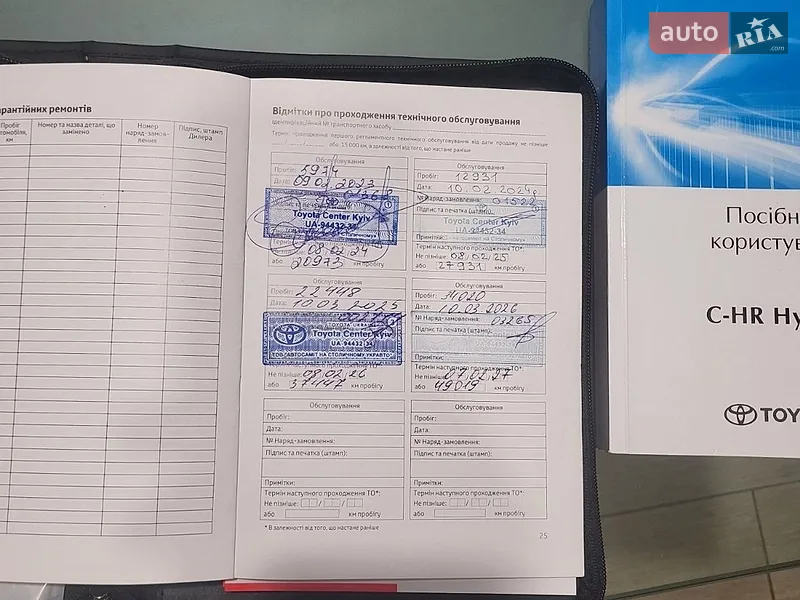 арантійних ремонтів
Пробіг
втомобіля,
км
Номер та назва деталі, що
замінено
Номер
наряд-замов-
лення
Підпис, штамп
Дилера
Відмітки про проходження технічного обслуговування
Ідентифікаційний № транспортного засобу
Термін проходження першого регламентного технічного обслуговування від дати продажу не пізніше
або 15 000 км, в залежності від того, що настане раніше
Обслуговування
Пробіг: 5974
Дата: 09.02.2023
Підпис та печатка
Toyota Center Kyiv
UA-94432-34
08.02.24
або 20973
Обслуговування
Пробіг: 12931
Дата: 10.02.2024р
№ Наряд-замовлення: 01522
Підпис та печатка (штамп):
Toyota Center Kyiv
UA-94432-34
Термін наступного проходження ТО*:
Не пізніше: 08.02.25
або 27931 км пробігу
Обслуговування
Пробіг: 22448
Дата: 10.03.2025
TOYOTA UKRAINE
Toyota Center Kyiv
UA-94432-34
ТОВ "АВТОСАМІТ НА СТОЛИЧНОМУ"
Не пізніше: 08.02.26
або 37447 км пробігу
Обслуговування
Пробіг: 34020
Дата: 10.03.2026
№ Наряд-замовлення: 03265
Підпис та печатка (штамп):
Примітки:
Термін наступного проходження ТО*:
Не пізніше: 07.02.27
або 49019 км пробігу
Обслуговування
Пробіг:
Дата:
№ Наряд-замовлення:
Підпис та печатка (штамп):
Примітки:
Термін наступного проходження ТО*:
Не пізніше:
або км пробігу
Обслуговування
Пробіг:
Дата:
№ Наряд-замовлення:
Підпис та печатка (штамп):
Примітки:
Термін наступного проходження ТО*:
Не пізніше:
або км пробігу
* В залежності від того, що настане раніше
25
auto RIA.com
Посібн
користув
C-HR Hy
TOYO